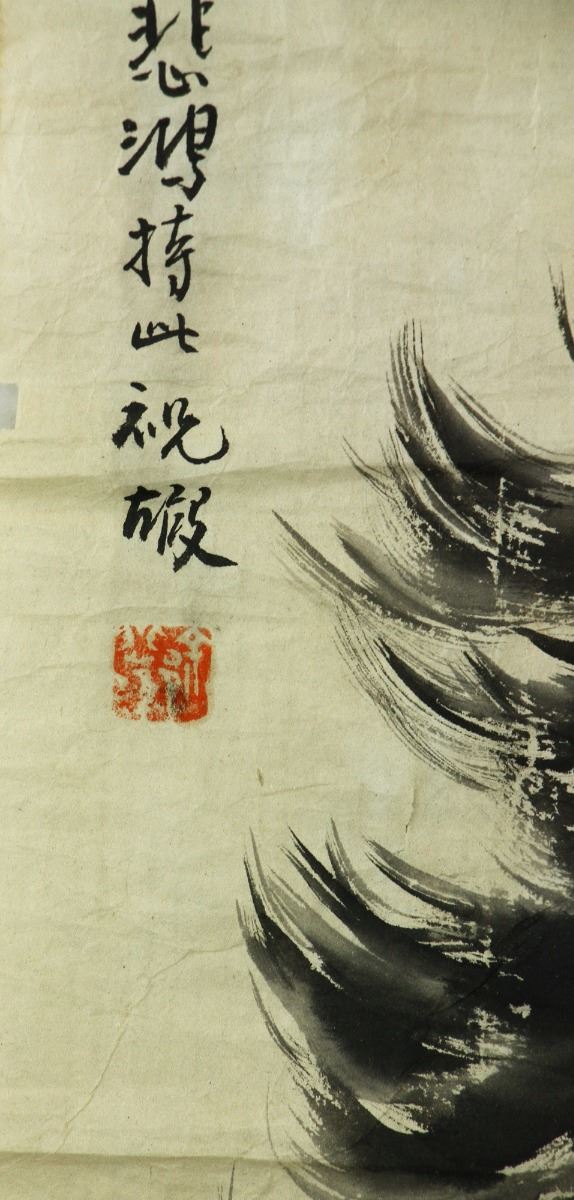 悲鴻持此祝嘏